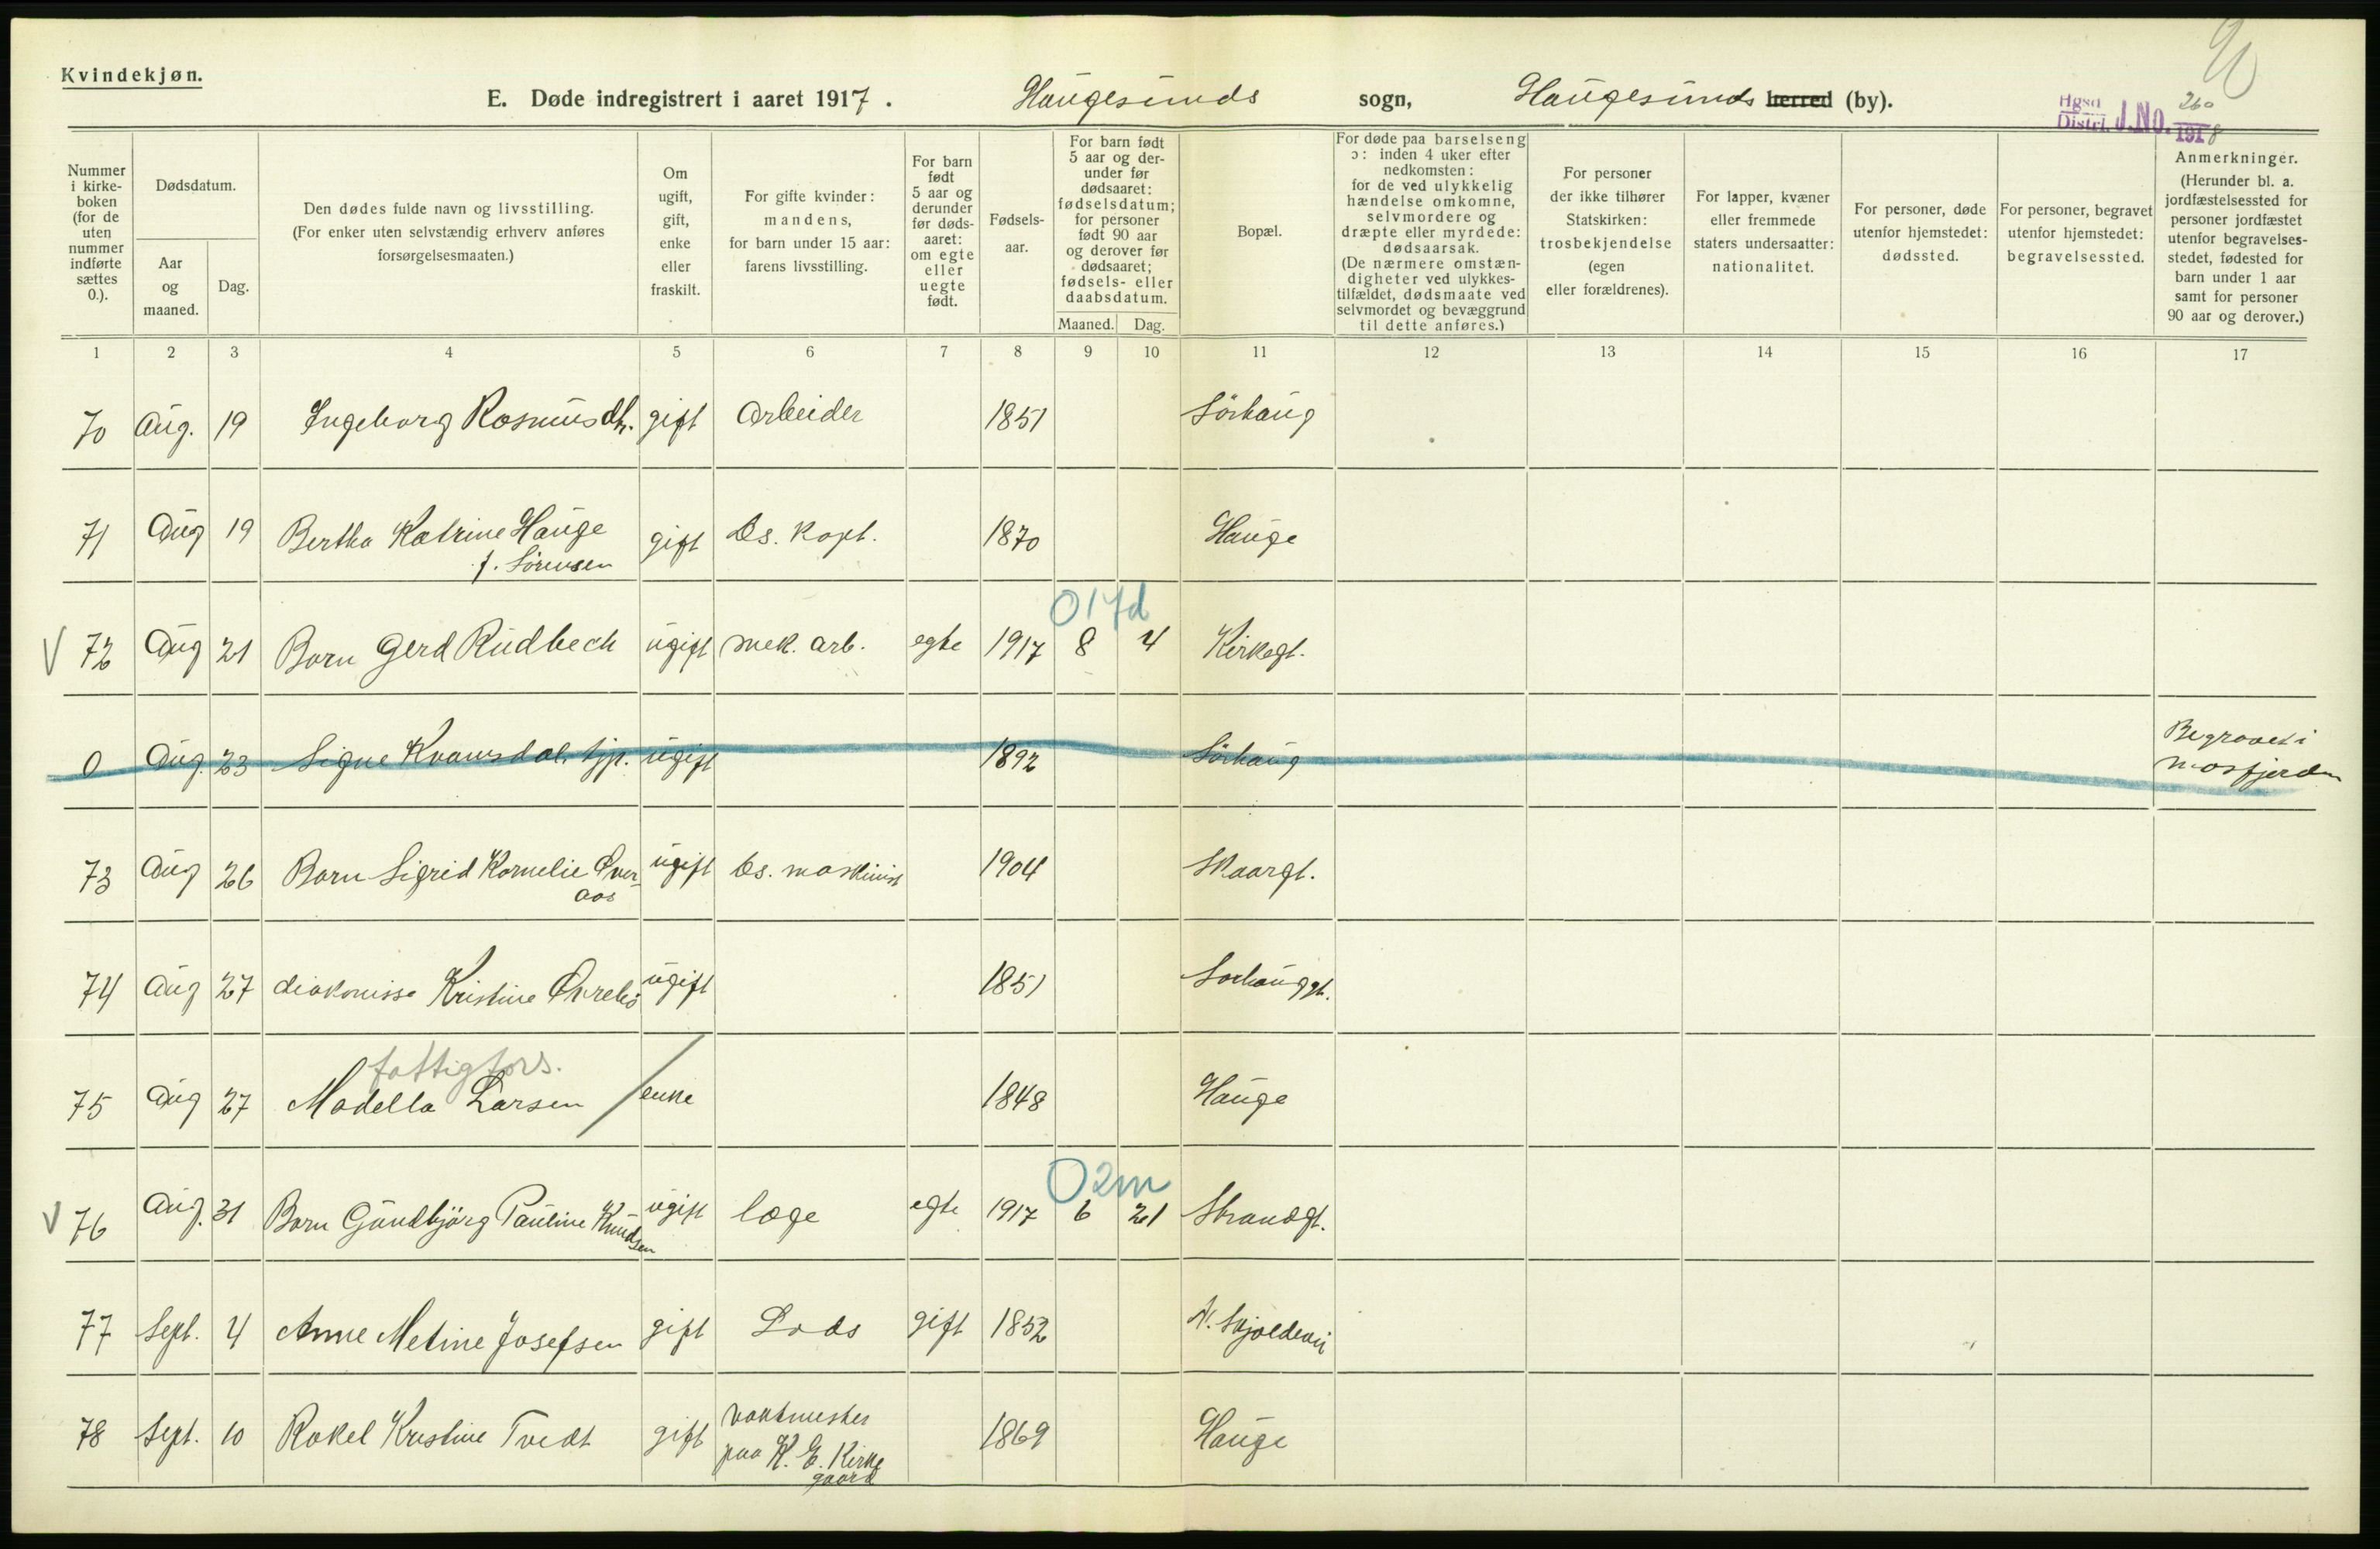 Kvindekjøn.
90
E. Døde indregistrert i aaret 1917. Haugesunds sogn, Haugesunds herred (by).
Hgsd Distr. J.No. 260 1918
Nummer i kirke-boken (for de uten nummer indførte sættes 0.).
Dødsdatum.
Aar og maaned.
Dag.
Den dødes fulde navn og livsstilling.
(For enker uten selvstændig erhverv anføres forsørgelsesmaaten.)
Om ugift, gift, enke eller fraskilt.
For gifte kvinder: mandens, for barn under 15 aar: farens livsstilling.
For barn født 5 aar og derunder før døds-aaret: om egte eller uegte født.
Fødsels-aar.
For barn født 5 aar og der-under før dødsaaret: fødselsdatum; for personer født 90 aar og derover før dødsaaret; fødsels- eller daabsdatum.
Maaned. Dag.
Bopæl.
For døde paa barselseng ɔ: inden 4 uker efter nedkomsten: for de ved ulykkelig hændelse omkomne, selvmordere og dræpte eller myrdede: dødsaarsak. (De nærmere omstæn-digheter ved ulykkes-tilfældet, dødsmaate ved selvmordet og bevæggrund til dette anføres.)
For personer der ikke tilhører Statskirken: trosbekjendelse (egen eller forældrenes).
For lapper, kvæner eller fremmede staters undersaatter: nationalitet.
For personer, døde utenfor hjemstedet: dødssted.
For personer, begravet utenfor hjemstedet: begravelsessted.
Anmerkninger. (Herunder bl. a. jordfæstelsessted for personer jordfæstet utenfor begravelses-stedet, fødested for barn under 1 aar samt for personer 90 aar og derover.)
1 2 3 4 5 6 7 8 9 10 11 12 13 14 15 16 17
70 Aug. 19 Ingeborg Rasmusdtr. gift Arbeider 1851 Sörhaug
71 Aug 19 Bertha Katrine Hauge gift Ds. Kapt. 1870 Hauge
f. Sörensen
0 17d
V 72 Aug 21 Barn Gerd Rudbech ugift mek. arb. egte 1917 8 4 Kirkegt.
0 Aug. 23 Signe Kvamsdal, tjp. ugift 1892 Sörhaug Begravet i
Mosfjerden
73 Aug 26 Barn Sigrid Kornelie Över- ugift Ds. maskinist 1904 Skaargt.
aas
74 Aug 27 diakonisse Kristine Övrebö ugift 1851 Sörhauggt.
fattigfors.
75 Aug 27 Madella Larsen / enke 1848 Hauge
0 2m
V 76 Aug. 31 Barn Gundbjörg Pauline Knudsen ugift læge egte 1917 6 21 Strandgt.
77 Sept. 4 Anne Metine Josefsen gift Lods gift 1852 N. Skjoldevei
78 Sept. 10 Rakel Kristine Tvedt gift vaktmester 1869 Hauge
paa H. E. Kirke
gaard